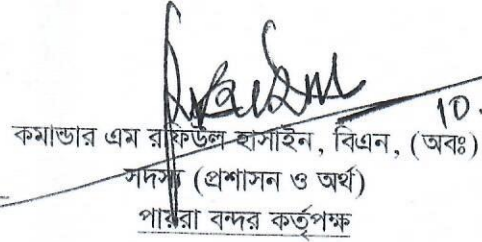 10.
কমান্ডার এম রাফিউল হাসাইন, বিএন, (অবঃ)
সদস্য (প্রশাসন ও অর্থ)
পায়রা বন্দর কর্তৃপক্ষ